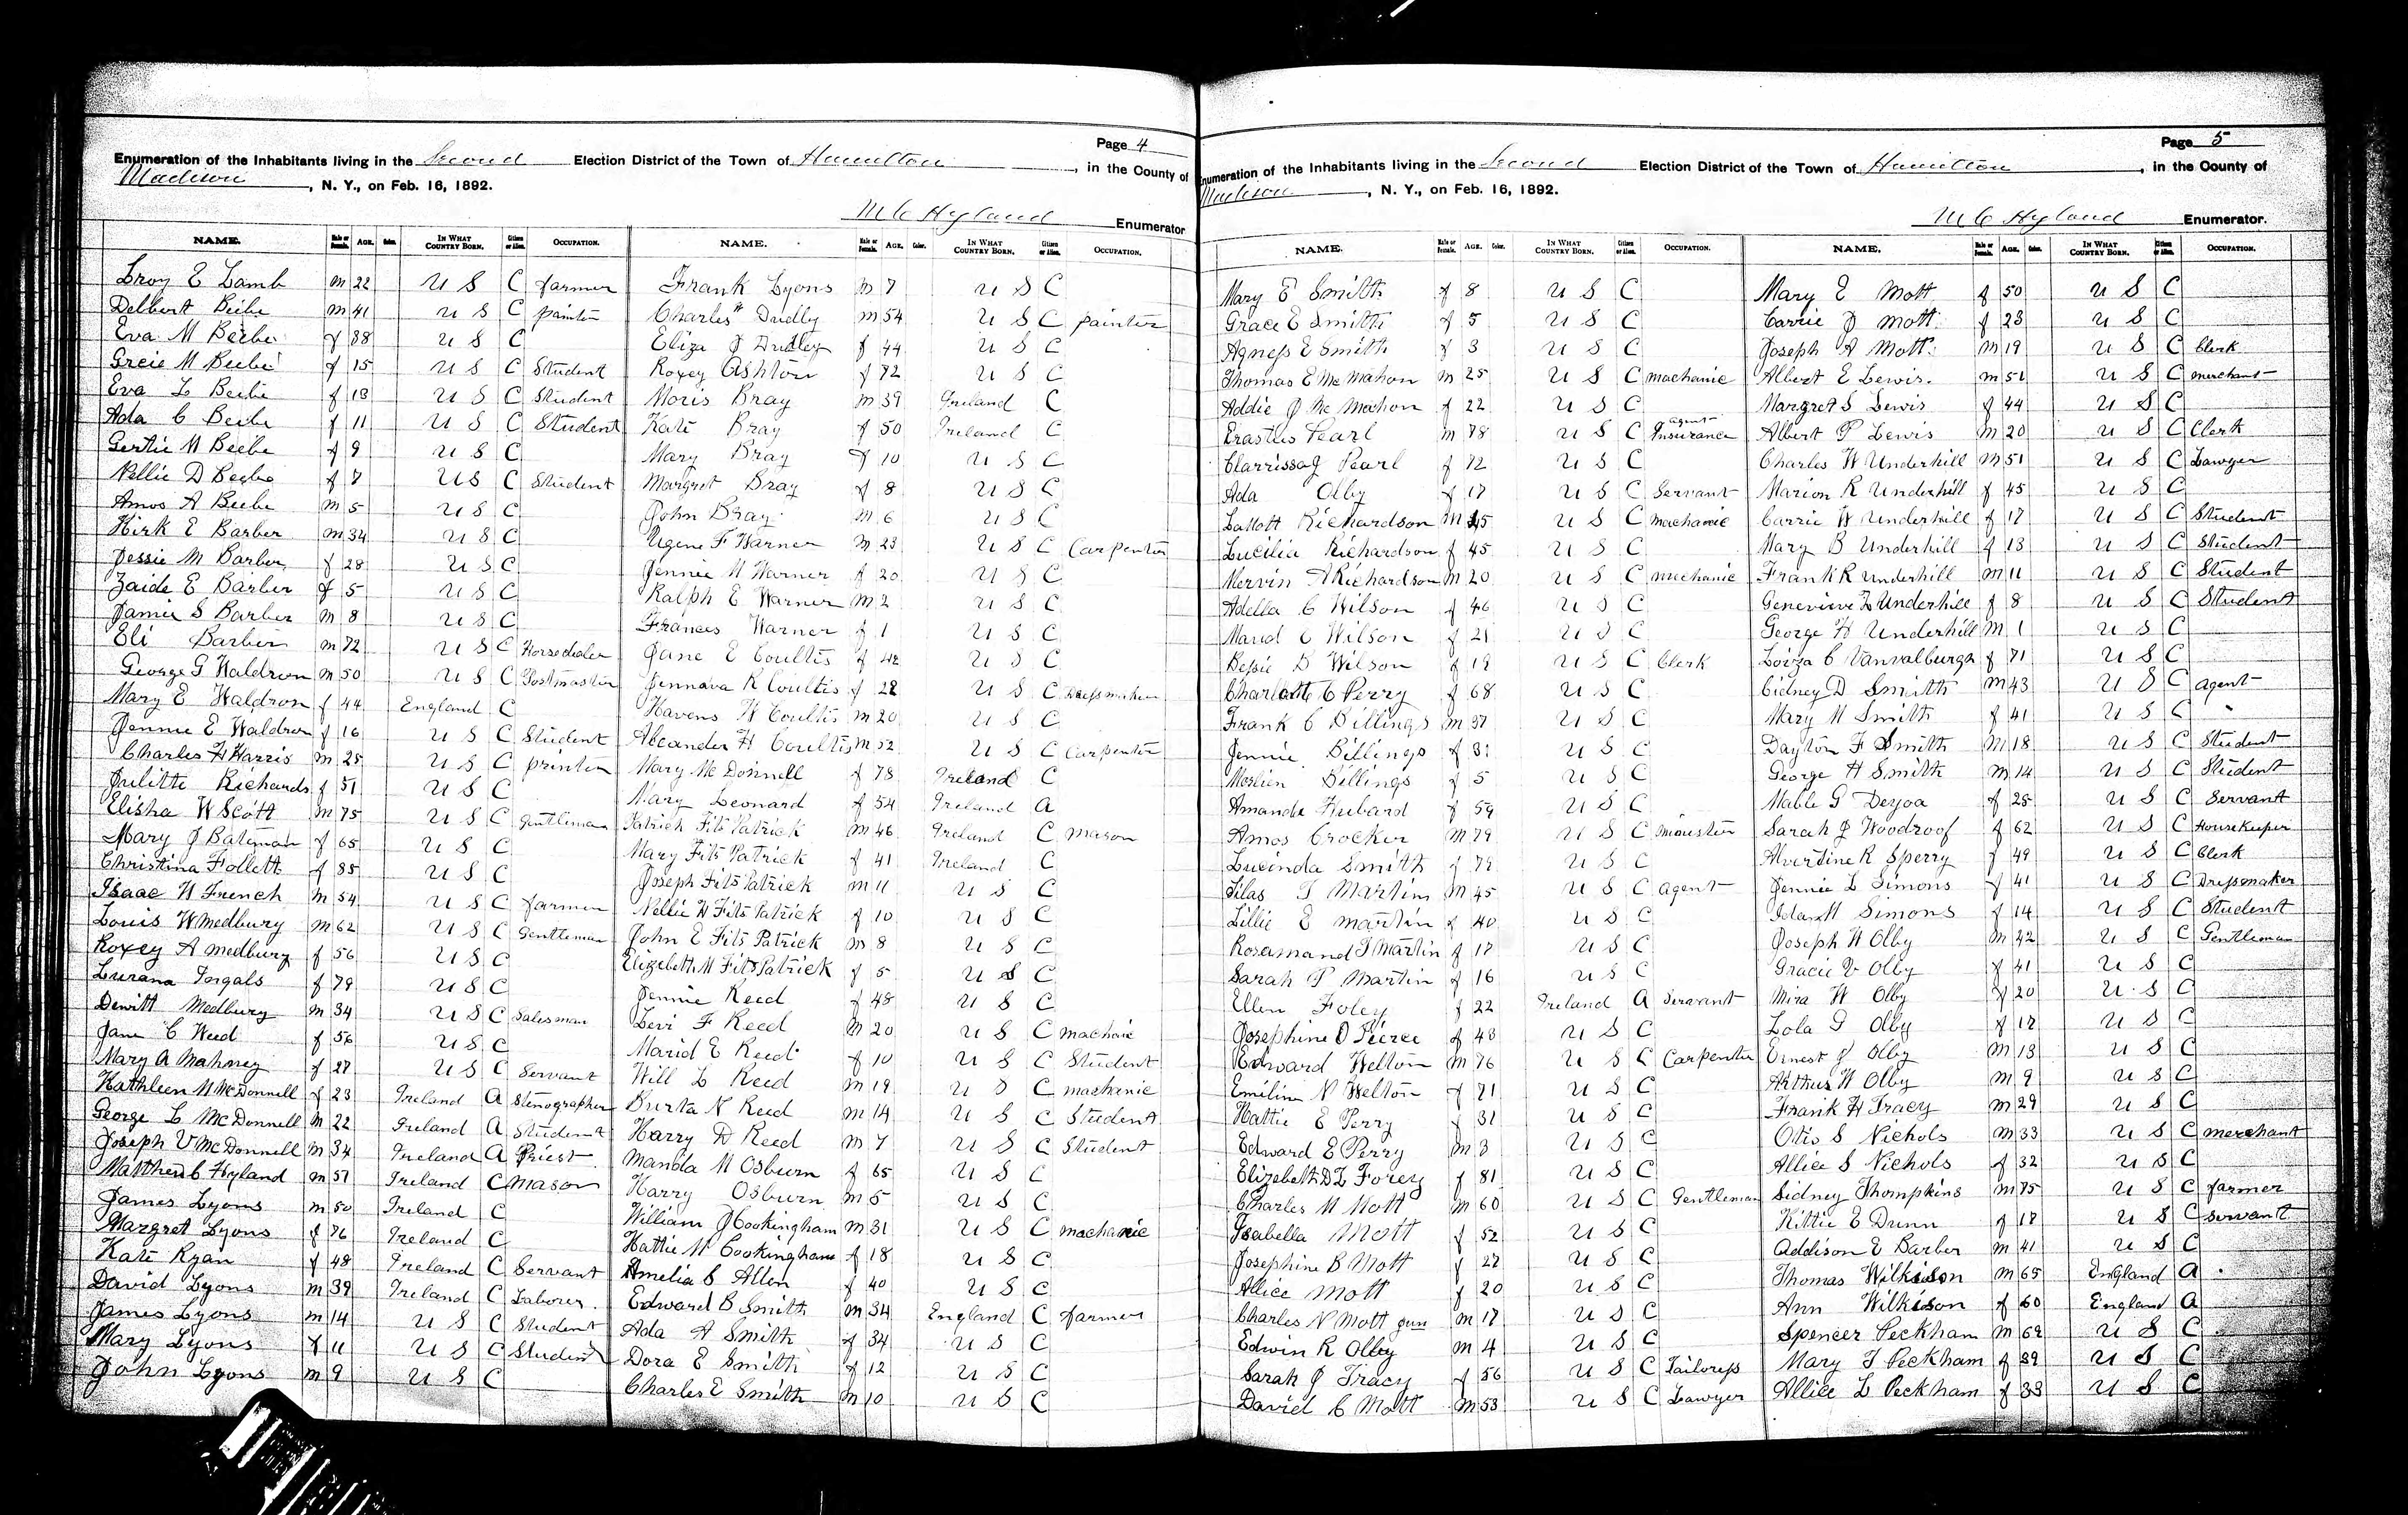 Page 4
Enumeration of the Inhabitants living in the Second Election District of the Town of Hamilton, in the County of
Madison, N. Y., on Feb. 16, 1892.
M C Hyland Enumerator
NAME. Male or Female. AGE. Color. IN WHAT COUNTRY BORN. Citizen or Alien. OCCUPATION.
Lroy E Lamb m 22 U S C farmer
Delbert Beebe m 41 U S C painter
Eva M Beebe f 38 U S C
Grcie M Beebe f 15 U S C Student
Eva L Beebe f 13 U S C Student
Ada C Beebe f 11 U S C Student
Gertie M Beebe f 9 U S C
Nellie D Beebe f 7 U S C Student
Amos A Beebe m 5 U S C
Kirk E Barber m 34 U S C
Jessie M Barber f 28 U S C
Zaide E Barber f 5 U S C
Jamie S Barber m 8 U S C
Eli Barber m 72 U S C Horsedealer
George G Waldron m 50 U S C Postmaster
Mary E Waldron f 44 England C
Jennie E Waldron f 16 U S C Student
Charles H Harris m 25 U S C printer
Julitte Richards f 51 U S C
Elisha W Scott m 75 U S C Gentleman
Mary J Bateman f 65 U S C
Christina Follett f 85 U S C
Isaac N French m 54 U S C farmer
Louis W Medbury m 62 U S C Gentleman
Roxey A Medbury f 56 U S C
Lurana f 79 U S C
Dewitt Medbury m 34 U S C Salesman
Jane C Weed f 56 U S C
Mary A Mahney f 27 U S C Servant
Kathleen M McDonnell f 23 Ireland A Stenographer
George L McDonnell m 22 Ireland A Student
Joseph V McDonnell m 34 Ireland A Priest
Matthew C Hyland m 51 Ireland C Mason
James Lyons m 50 Ireland C
Margret Lyons f 76 Ireland C
Kate Ryan f 48 Ireland C Servant
David Lyons m 39 Ireland C Laborer
James Lyons m 14 U S C Student
Mary Lyons f 11 U S C Student
John Lyons m 9 U S C
NAME. Male or Female. AGE. Color. IN WHAT COUNTRY BORN. Citizen or Alien. OCCUPATION.
Frank Lyons m 7 U S C
Charles Dudly m 54 U S C painter
Eliza J Dudley f 44 U S C
Roxey Ashton f 72 U S C
Moris Bray m 39 Ireland C
Kate Bray f 50 Ireland C
Mary Bray f 10 U S C
Margret Bray f 8 U S C
John Bray m 6 U S C
Ugene F Warner m 23 U S C Carpenter
Jennie M Warner f 20 U S C
Ralph E Warner m 2 U S C
Frances Warner f 1 U S C
Jane E Coultis f 42 U S C
Jennava R Coultis f 22 U S C Dressmaker
Havens W Coultis m 20 U S C
Alcander H Coultis m 52 U S C Carpenter
Mary McDonnell f 78 Ireland C
Mary Leonard f 54 Ireland A
Patrick Fits Patrick m 46 Ireland C mason
Mary Fits Patrick f 41 Ireland C
Joseph Fits Patrick m 11 U S C
Nellie H Fits Patrick f 10 U S C
John E Fits Patrick m 8 U S C
Elizebeth M Fits Patrick f 5 U S C
Jennie Reed f 48 U S C
Levi F Reed m 20 U S C machanic
Marid E Reed f 10 U S C Student
Will L Reed m 19 U S C machanic
Burta N Reed m 14 U S C Student
Harry D Reed m 7 U S C Student
Manda M Osburn f 65 U S C
Harry Osburn m 5 U S C
William J Cookingham m 31 U S C machanic
Hattie M Cookingham f 18 U S C
Amelia C Allen f 40 U S C
Edward B Smith m 34 England C farmer
Ada A Smith f 34 U S C
Dora E Smith f 12 U S C
Charles E Smith m 10 U S C
Page 5
Enumeration of the Inhabitants living in the Second Election District of the Town of Hamilton, in the County of
Madison, N. Y., on Feb. 16, 1892.
M C Hyland Enumerator.
NAME. Male or Female. AGE. Color. IN WHAT COUNTRY BORN. Citizen or Alien. OCCUPATION.
Mary E Smith f 8 U S C
Grace E Smith f 5 U S C
Agness E Smith f 3 U S C
Thomas E McMahon m 25 U S C machanic
Addie J McMahon f 22 U S C
Erastus Pearl m 78 U S C Insurance agent
Clarrissa J Pearl f 72 U S C
Ada Olby f 17 U S C Servant
Richardson m 45 U S C machanic
Lucilia Richardson f 45 U S C
Mervin A Richardson m 20 U S C mechanic
Adella C Wilson f 46 U S C
Maud C Wilson f 21 U S C
Bessie D Wilson f 19 U S C Clerk
Charlotte C Perry f 68 U S C
Frank C Billings m 37 U S C
Jennie Billings f 31 U S C
Billings f 5 U S C
Amanda Hubard f 59 U S C
Amos Crocker m 79 U S C minister
Lucinda Smith f 79 U S C
Silas T Martin m 45 U S C agent
Lillie E Martin f 40 U S C
Rosamand T Martin f 17 U S C
Sarah P Martin f 16 U S C
Ellen Foley f 22 Ireland A Servant
Josephine O Pierce f 43 U S C
Edward Welton m 76 U S C Carpenter
Emiline N Welton f 71 U S C
Hattie E Perry f 31 U S C
Edward E Perry m 3 U S C
Elizebeth D L Forey f 81 U S C
Charles M Mott m 60 U S C Gentleman
Isabella Mott f 52 U S C
Josephine B Mott f 22 U S C
Allice Mott f 20 U S C
Charles N Mott jun m 17 U S C
Edwin R Olby m 4 U S C
Sarah J Tracy f 56 U S C Tailoress
David C Mott m 53 U S C Lawyer
NAME. Male or Female. AGE. Color. IN WHAT COUNTRY BORN. Citizen or Alien. OCCUPATION.
Mary E Mott f 50 U S C
Carrie J Mott f 23 U S C
Joseph A Mott m 19 U S C Clerk
Albert E Lewis m 51 U S C merchant
Margret S Lewis f 44 U S C
Albert P Lewis m 20 U S C Clerk
Charles W Underhill m 51 U S C Lawyer
Marion R Underhill f 45 U S C
Carrie W Underhill f 17 U S C Student
Mary B Underhill f 13 U S C Student
Frank R Underhill m 11 U S C Student
Genevieve L Underhill f 8 U S C Student
George H Underhill m 1 U S C
Loiza C Vanvalburgh f 71 U S C
Cidney D Smith m 43 U S C agent
Mary M Smith f 41 U S C
Dayton F Smith m 18 U S C Student
George H Smith m 14 U S C Student
Mable G Deyoa f 25 U S C Servant
Sarah J Woodroof f 62 U S C Housekeeper
Alvertine R Sperry f 49 U S C Clerk
Jennie L Simons f 41 U S C Dressmaker
Ida M Simons f 14 U S C Student
Joseph W Olby m 42 U S C Gentleman
Gracie V Olby f 41 U S C
Mira W Olby f 20 U S C
Lola G Olby f 12 U S C
Ernest J Olby m 13 U S C
Arthur W Olby m 9 U S C
Frank H Tracy m 29 U S C
Otis S Nichols m 33 U S C merchant
Allice S Nichols f 32 U S C
Sidney Thompkins m 75 U S C farmer
Kittie E Dunn f 18 U S C servant
Addison E Barber m 41 U S C
Thomas Wilkison m 65 England A
Ann Wilkison f 60 England A
Spencer Peckham m 62 U S C
Mary T Peckham f 39 U S C
Allice L Peckham f 33 U S C